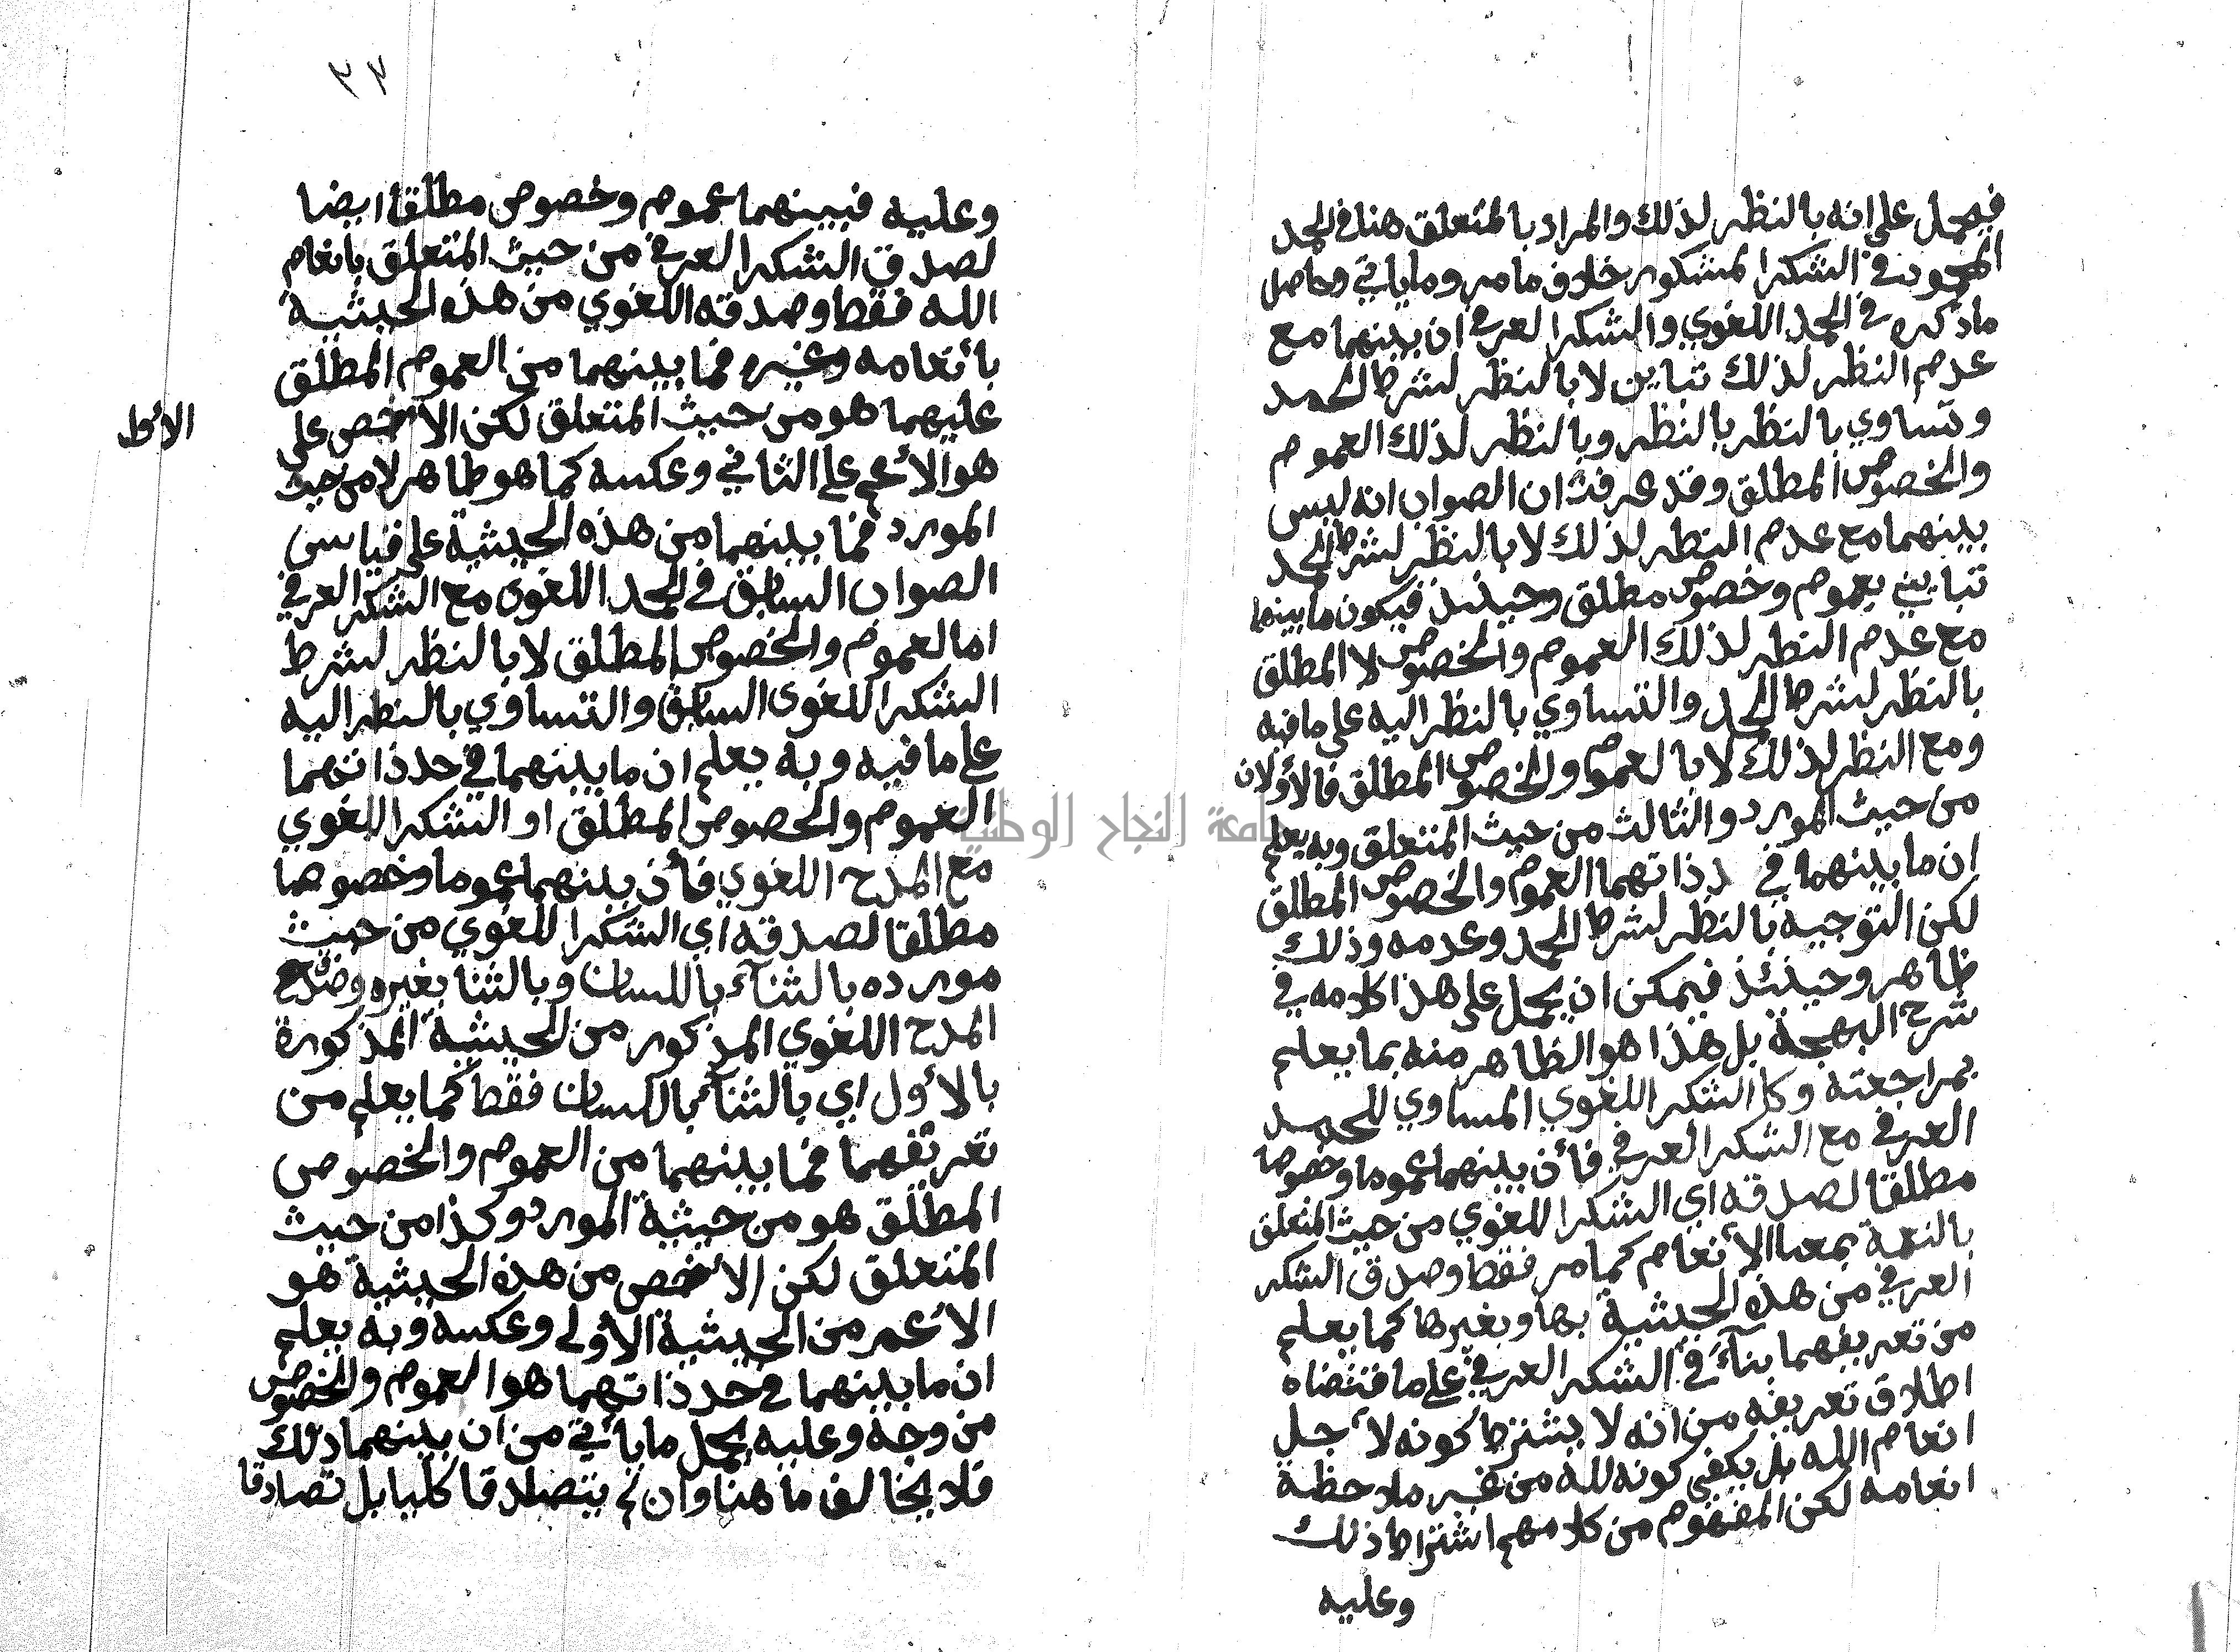 فيحمل على انه بالنظر لذلك والمراد بالمتعلق هنا في الحمد
المحمود في الشكر المشكور خلاف ما مر وما ياتي وحاصل
ما ذكره في الحمد اللغوي والشكر العرفي ان بينهما مع
عدم النظر لذلك تباين لا بالنظر لشرط الحمد
وتساوي بالنظر بالنظر وبالنظر لذلك العموم
والخصوص المطلق وقد عرفت ان الصواب انه ليس
بينهما مع عدم النظر لذلك لا بالنظر لشرط الحمد
تبايني بعموم وخصوص مطلق وحينئذ فيكون ما بينهما
مع عدم النظر لذلك العموم والخصوص لا المطلق
بالنظر لشرط الحمد والتساوي بالنظر اليه على ما فيه
ومع النظر لذلك لا بالعموم والخصوص المطلق فالأولان
من حيث المورد والثالث من حيث المتعلق وبه يعلم
ان ما بينهما في ذاتهما العموم والخصوص المطلق
لكن التوجيه بالنظر لشرط الحمد وعدمه وذلك
ظاهر وحينئذ فيمكن ان يحمل على هذا كلامه في
شرح البهجة بل هذا هو الظاهر منه بما يعلم
بمراجعته وكالشكر اللغوي المساوي للحمد
العرفي مع الشكر العرفي فأن بينهما عموما وخصوصا
مطلقا لصدقه اي الشكر اللغوي من حيث المتعلق
بالنعمة بمعنا الأنعام كما مر فقط وصدق الشكر
العرفي من هذه الحيثية بها وبغيرها كما يعلم
من تعريفهما بناءً في الشكر العرفي على ما اقتضاه
اطلاق تعريفه من انه لا يشترط كونه لأجل
انعام الله بل يكفي كونه لله من غير ملاحظة
انعامه لكن المفهوم من كلامهم اشتراط ذلك
وعليه
٣٣
وعليه فبينهما عموم وخصوص مطلقا ايضا
لصدق الشكر العرفي من حيث المتعلق بانعام
الله فقط وصدقه اللغوي من هذه الحيثية
بأنعامه وغيره فما بينهما من العموم المطلق
عليهما هو من حيث المتعلق لكن الأخص على
الأول
هو الأعم على الثاني وعكسه كما هو ظاهر لا من حيث
المورد فما بينهما من هذه الحيثية على قياس
الصواب السابق في الحمد اللغوي مع الشكر العرفي
اما العموم والخصوص المطلق لا بالنظر لشرط
الشكر اللغوي السابق والتساوي بالنظر اليه
على ما فيه وبه يعلم ان ما بينهما في حد ذاتهما
العموم والخصوص المطلق او الشكر اللغوي
مع المدح اللغوي فأن بينهما عموما وخصوصا
مطلقا لصدقه اي الشكر اللغوي من حيث
مورده بالثناء باللسان وبالثنا بغيره وصدق
المدح اللغوي المذكور من الحيثية المذكورة
بالأول اي بالثناء باللسان فقط كما يعلم من
تعريفهما فما بينهما من العموم والخصوص
المطلق هو من حيثية المورد وكذا من حيث
المتعلق لكن الأخص من هذه الحيثية هو
الأعم من الحيثية الأولى وعكسه وبه يعلم
ان ما بينهما في حد ذاتهما هو العموم والخصوص
من وجه وعليه يحمل ما يأتي من ان بينهما ذلك
فلا يخالف ما هنا وان لم يتصادقا كليا بل تصادقا